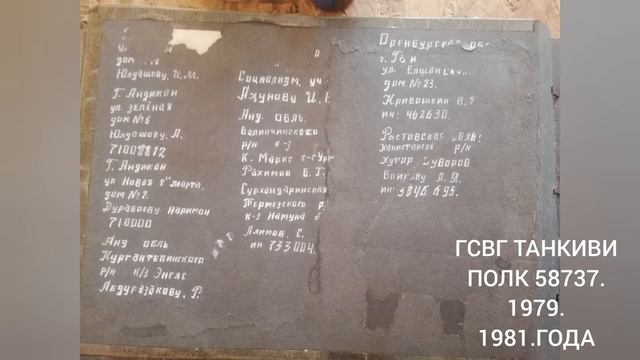 дом
Юлдашову, И.М.
Г. Андижан
ул. зелёная
дом №6
Юлдашову, Л.
Г. Андижан
ул Новая 8ᵒᵉ марта.
дом №2.
Дурабоеву Наримон
710000
Анд обль
Кургантепинского
р/н к/з Энглс
Абдуразакову, Р.
Социализм, уч
Ахунову И.
Анд. обль.
р/н к-з
К. Маркс
Рахимов Б. Т
Сурхандаринская
Термезского р
к-з Намуна
Алимов, С.
ин 733004.
Оренбургская
г.
ул.
дом №23.
Кривошеин В.
ин: 462630.
Растовская обль:
р/н
Хутор Суворов
ин 3846695.
ГСВГ ТАНКИВИ
ПОЛК 58737.
1979.
1981.ГОДА